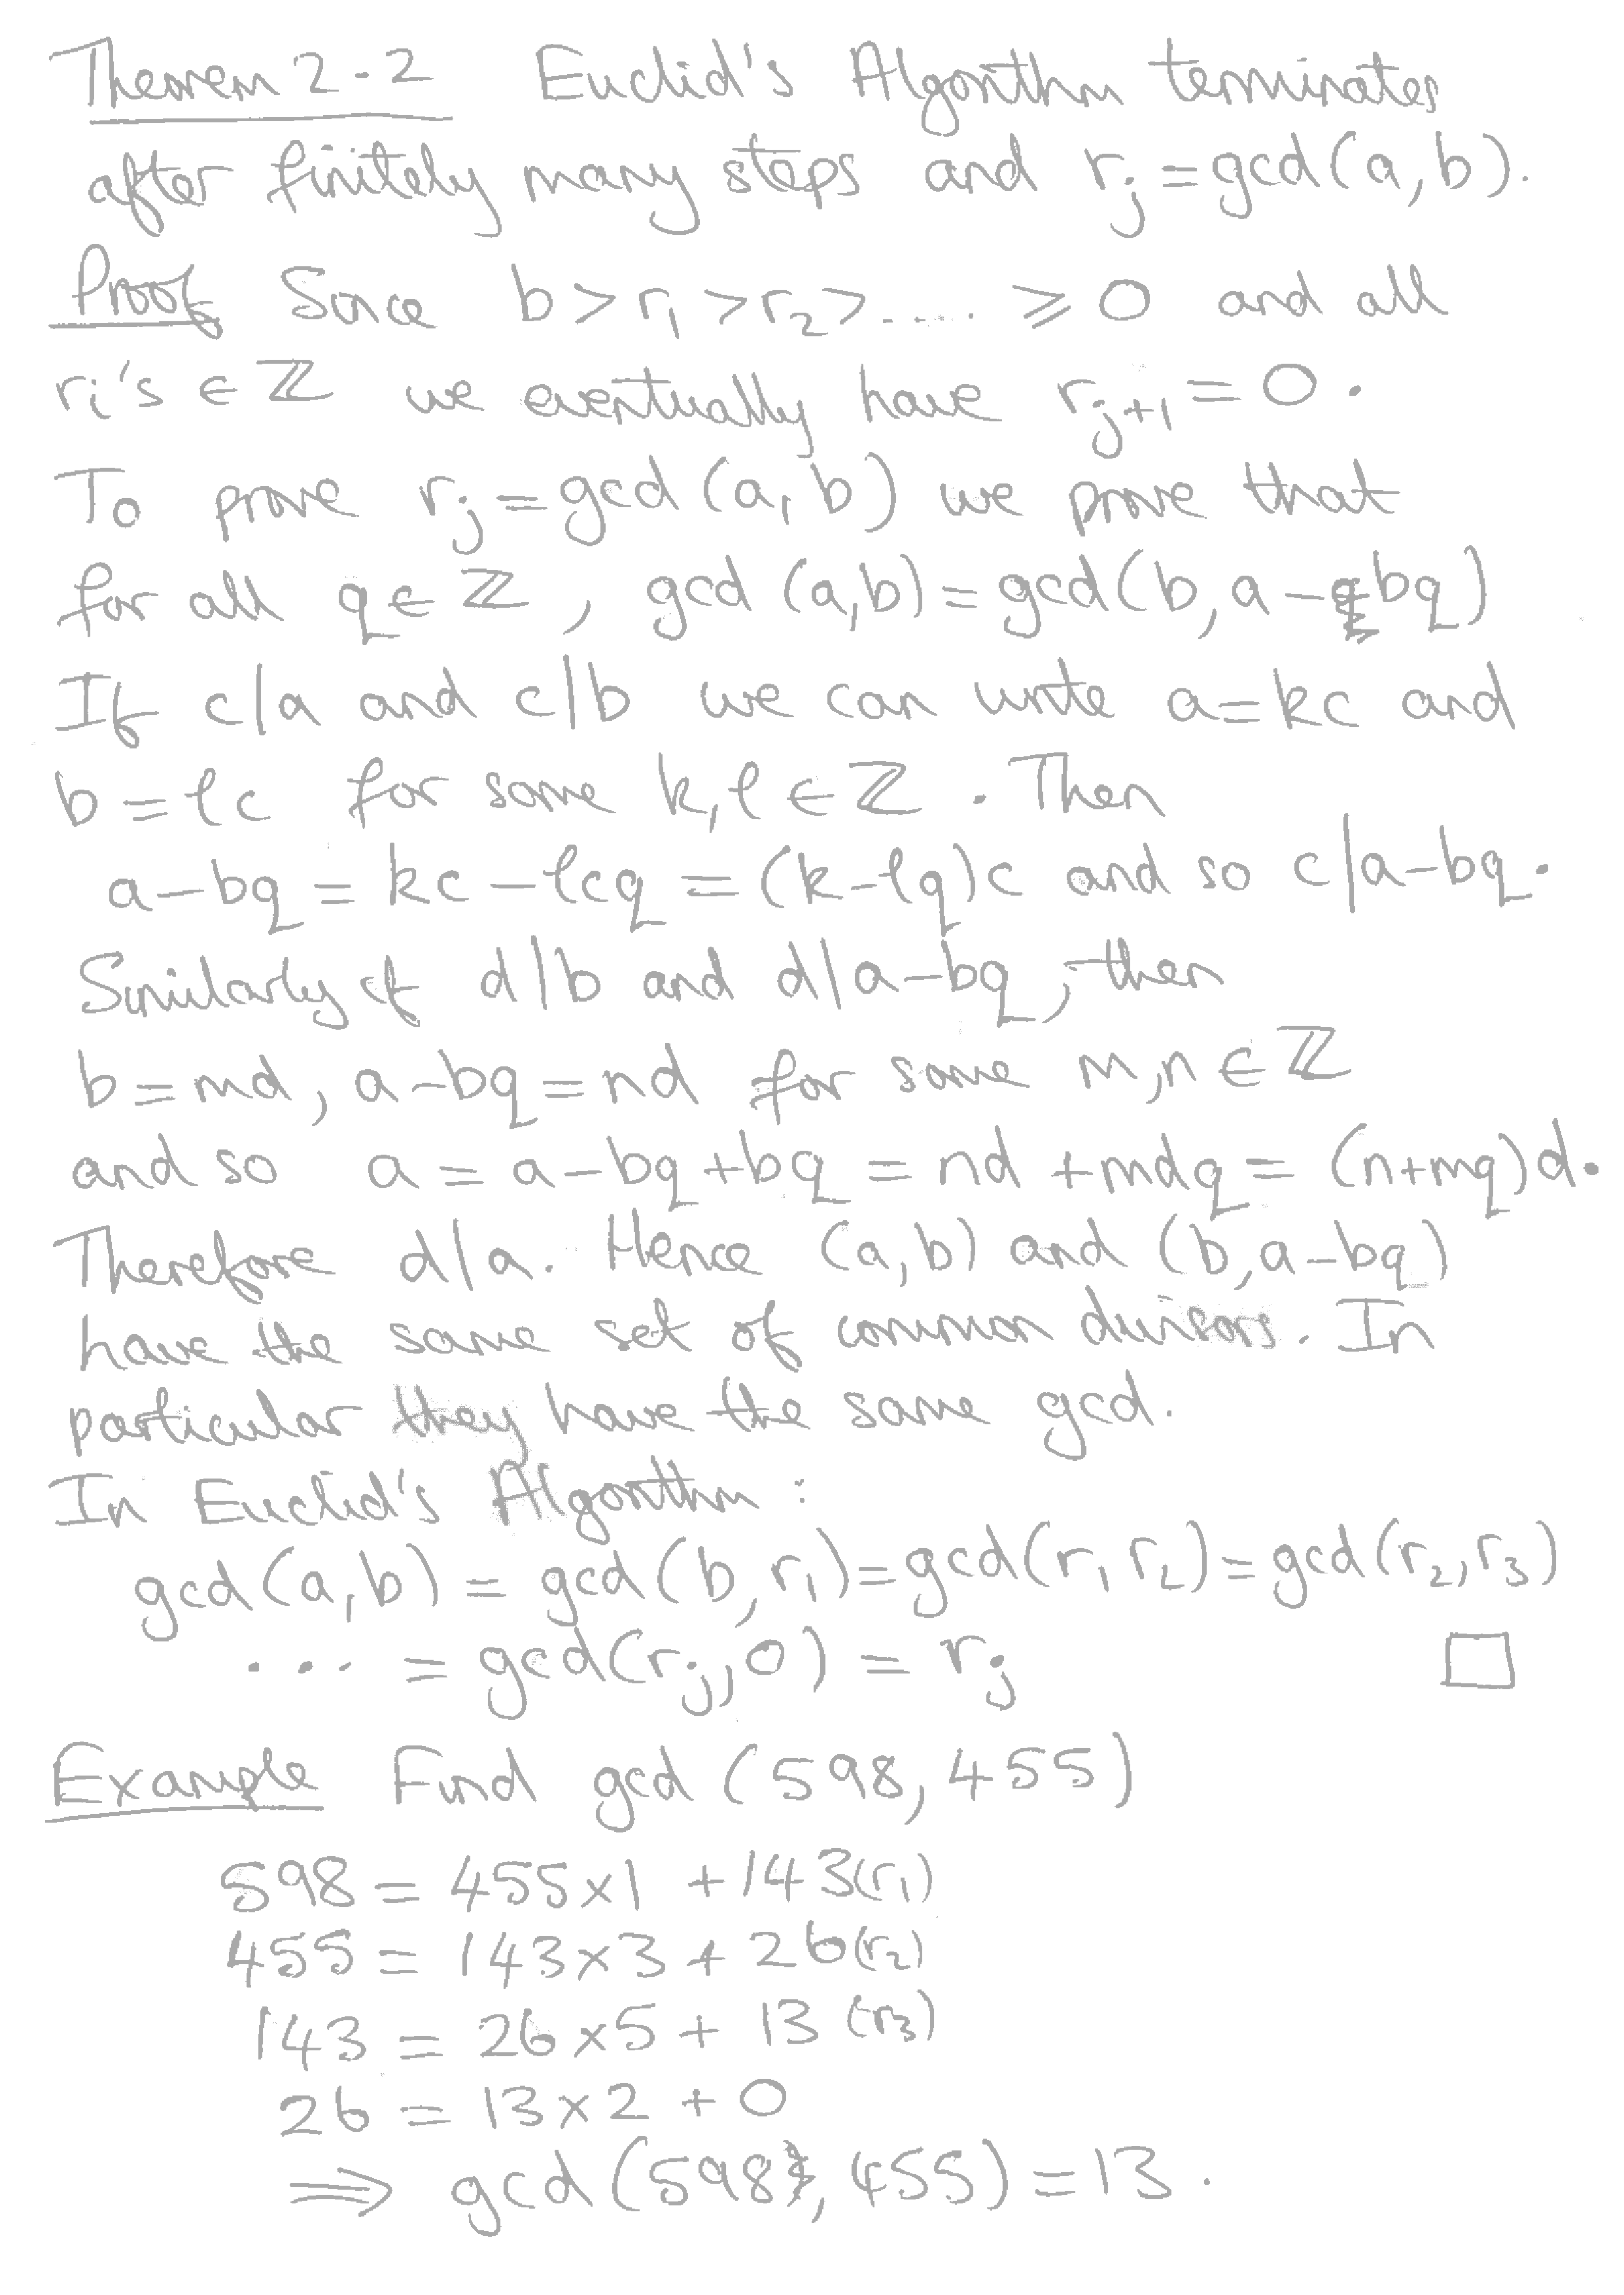 Theorem 2.2 Euclid's Algorithm terminates
after finitely many steps and r_j = gcd(a,b).
Proof Since b > r_1 > r_2 > ..... ⩾ 0 and all
r_i's ∈ ℤ we eventually have r_{j+1} = 0.
To prove r_j = gcd(a,b) we prove that
for all q ∈ ℤ, gcd(a,b) = gcd(b, a-bq)
If c|a and c|b we can write a = kc and
b = ℓc for some k,ℓ ∈ ℤ. Then
a-bq = kc - ℓcq = (k-ℓq)c and so c|a-bq.
Similarly if d|b and d|a-bq, then
b = md, a-bq = nd for some m,n ∈ ℤ
and so a = a-bq+bq = nd + mdq = (n+mq)d.
Therefore d|a. Hence (a,b) and (b,a-bq)
have the same set of common divisors. In
particular they have the same gcd.
In Euclid's Algorithm:
gcd(a,b) = gcd(b,r_1) = gcd(r_1 r_2) = gcd(r_2,r_3)
... = gcd(r_j,0) = r_j □
Example Find gcd(598,455)
598 = 455×1 + 143(r_1)
455 = 143×3 + 26(r_2)
143 = 26×5 + 13 (r_3)
26 = 13×2 + 0
⟹ gcd(598,455) = 13.